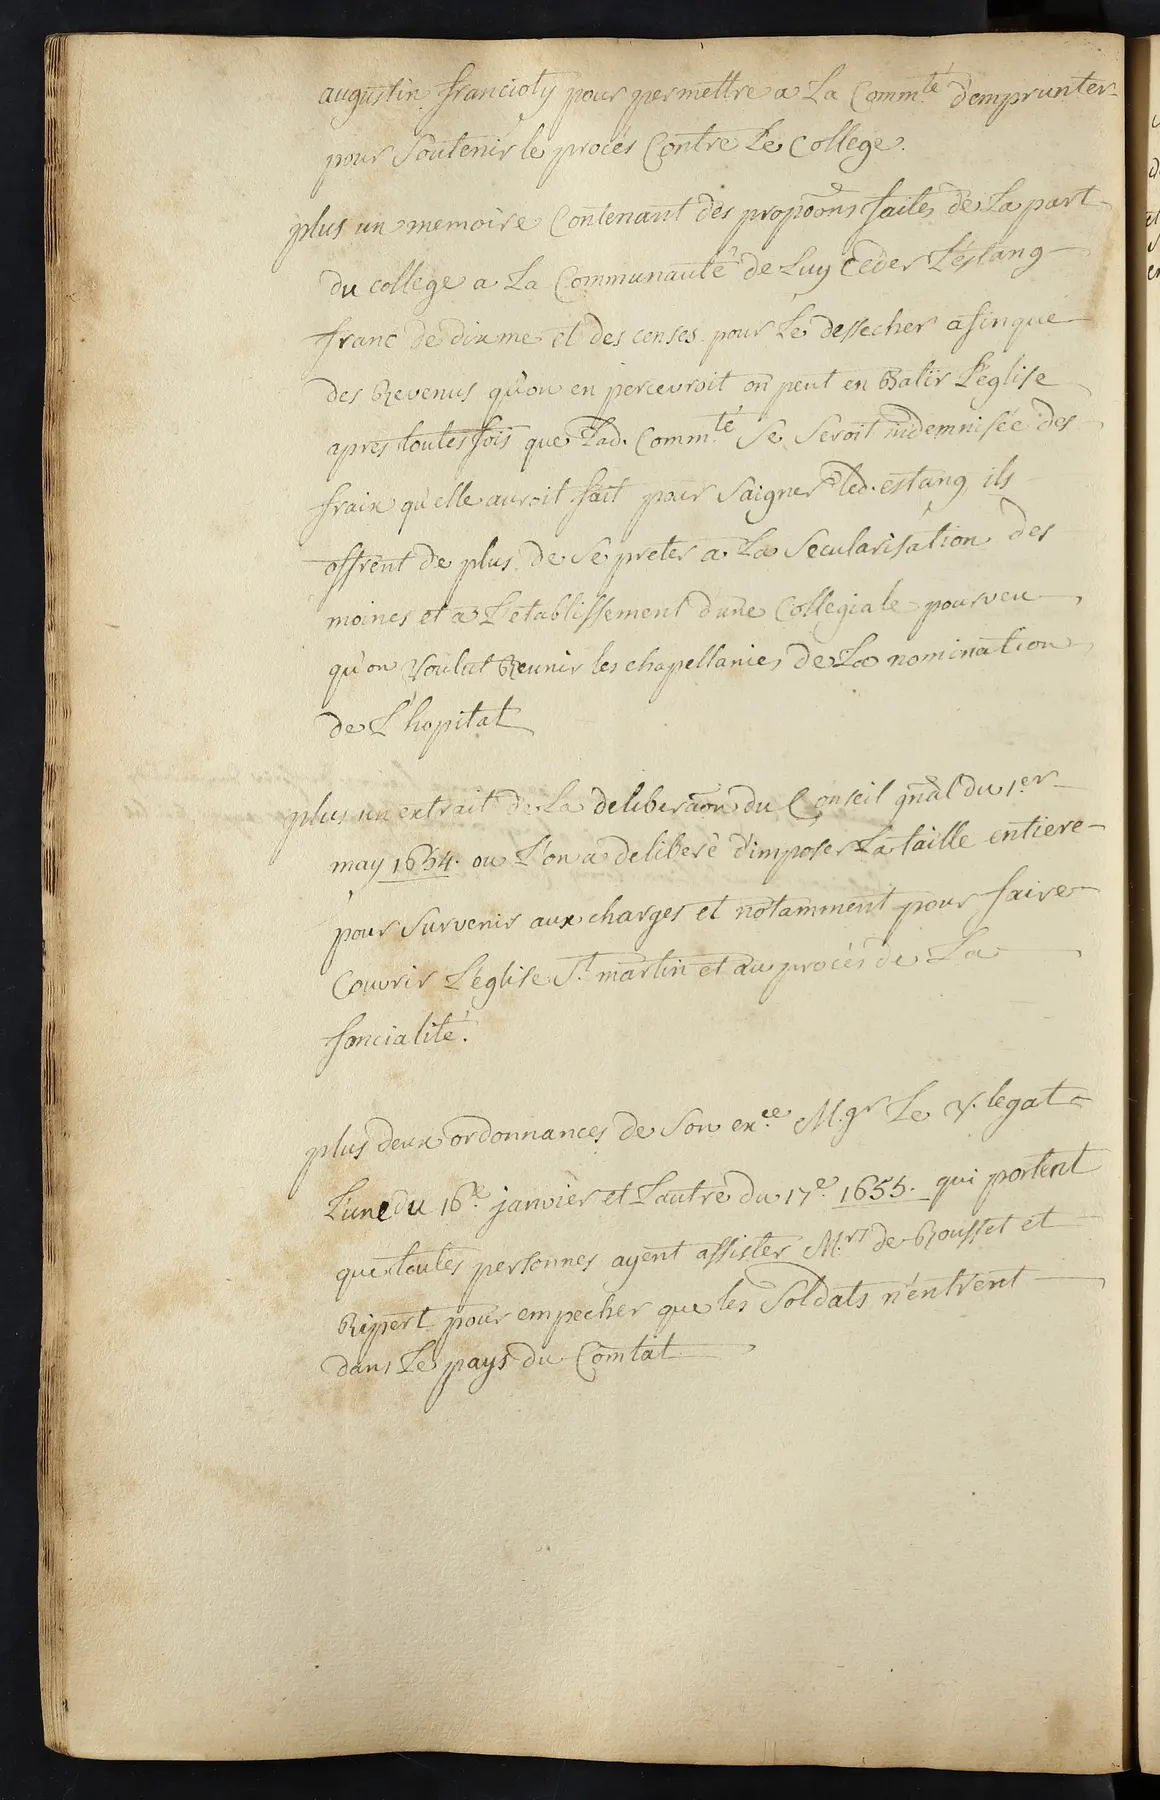 augustin francioty pour permettre a La Comm.té d'emprunter
pour Soutenir le procés Contre Le College.
plus un memoire Contenant des propoõns faites de La part
du college a La Communauté de Luy Ceder L'éstang
franc de dixme et des censes pour Le dessecher afinque
des Revenus qu'on en percevroit on peut en Batir L'église
apres toutes fois que Lad. Comm.té Se Seroit indemnisée des
fraix qu'elle auroit fait pour Saigner led. estang ils
offrent de plus de Se preter a La Secularisation des
moines et a L'etablissement d'une Collegiale pourveu
qu'on Voulut Reunir les chapellanies de La nomination
de L'hopital
plus un extrait de La deliberaõn du Conseil gñal du 1.er
may 1654. ou L'on a deliberé d'imposer La taille entiere
pour Survenir aux charges et notamment pour faire
Couvrir L'église S.t martin et au procés de La
foncialité.
plus deux ordonnances de Son ex.ce M.gr Le V. legat
L'une du 16.e janvier et L'autre du 17.e 1655. qui portent
que toutes personnes ayent assister M.rs de Rousset et
Ripert pour empecher que les Soldats n'entrent
dans Le pays du Comtat